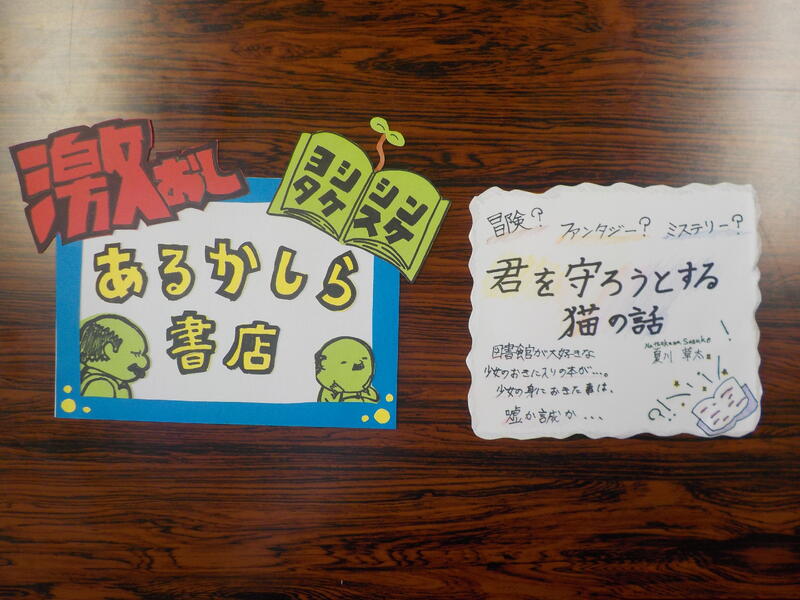 激おし
ヨシタケ
シンスケ
あるかしら
書店
冒険? ファンタジー? ミステリー?
君を守ろうとする
猫の話
Natsukawa Sosuke
夏川 草太
図書館が大好きな
少女のおきに入りの本が…。
少女の身におきた事は、
嘘か誠か...
!
?!